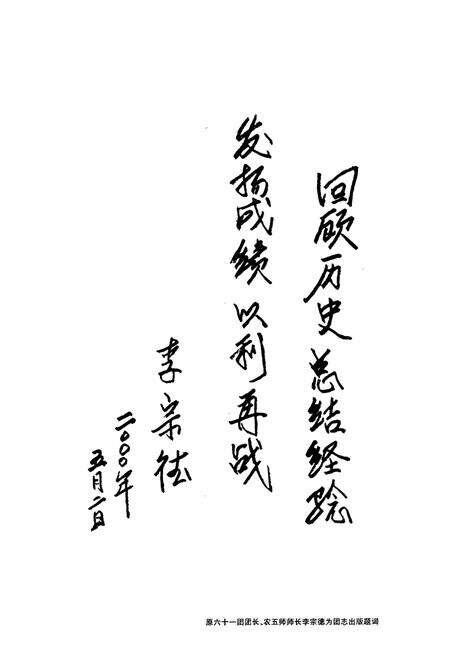 回顾历史总结经验
发扬成绩以利再战
李宗德
二〇〇〇年
五月二日
原六十一团团长、农五师师长李宗德为团志出版题词